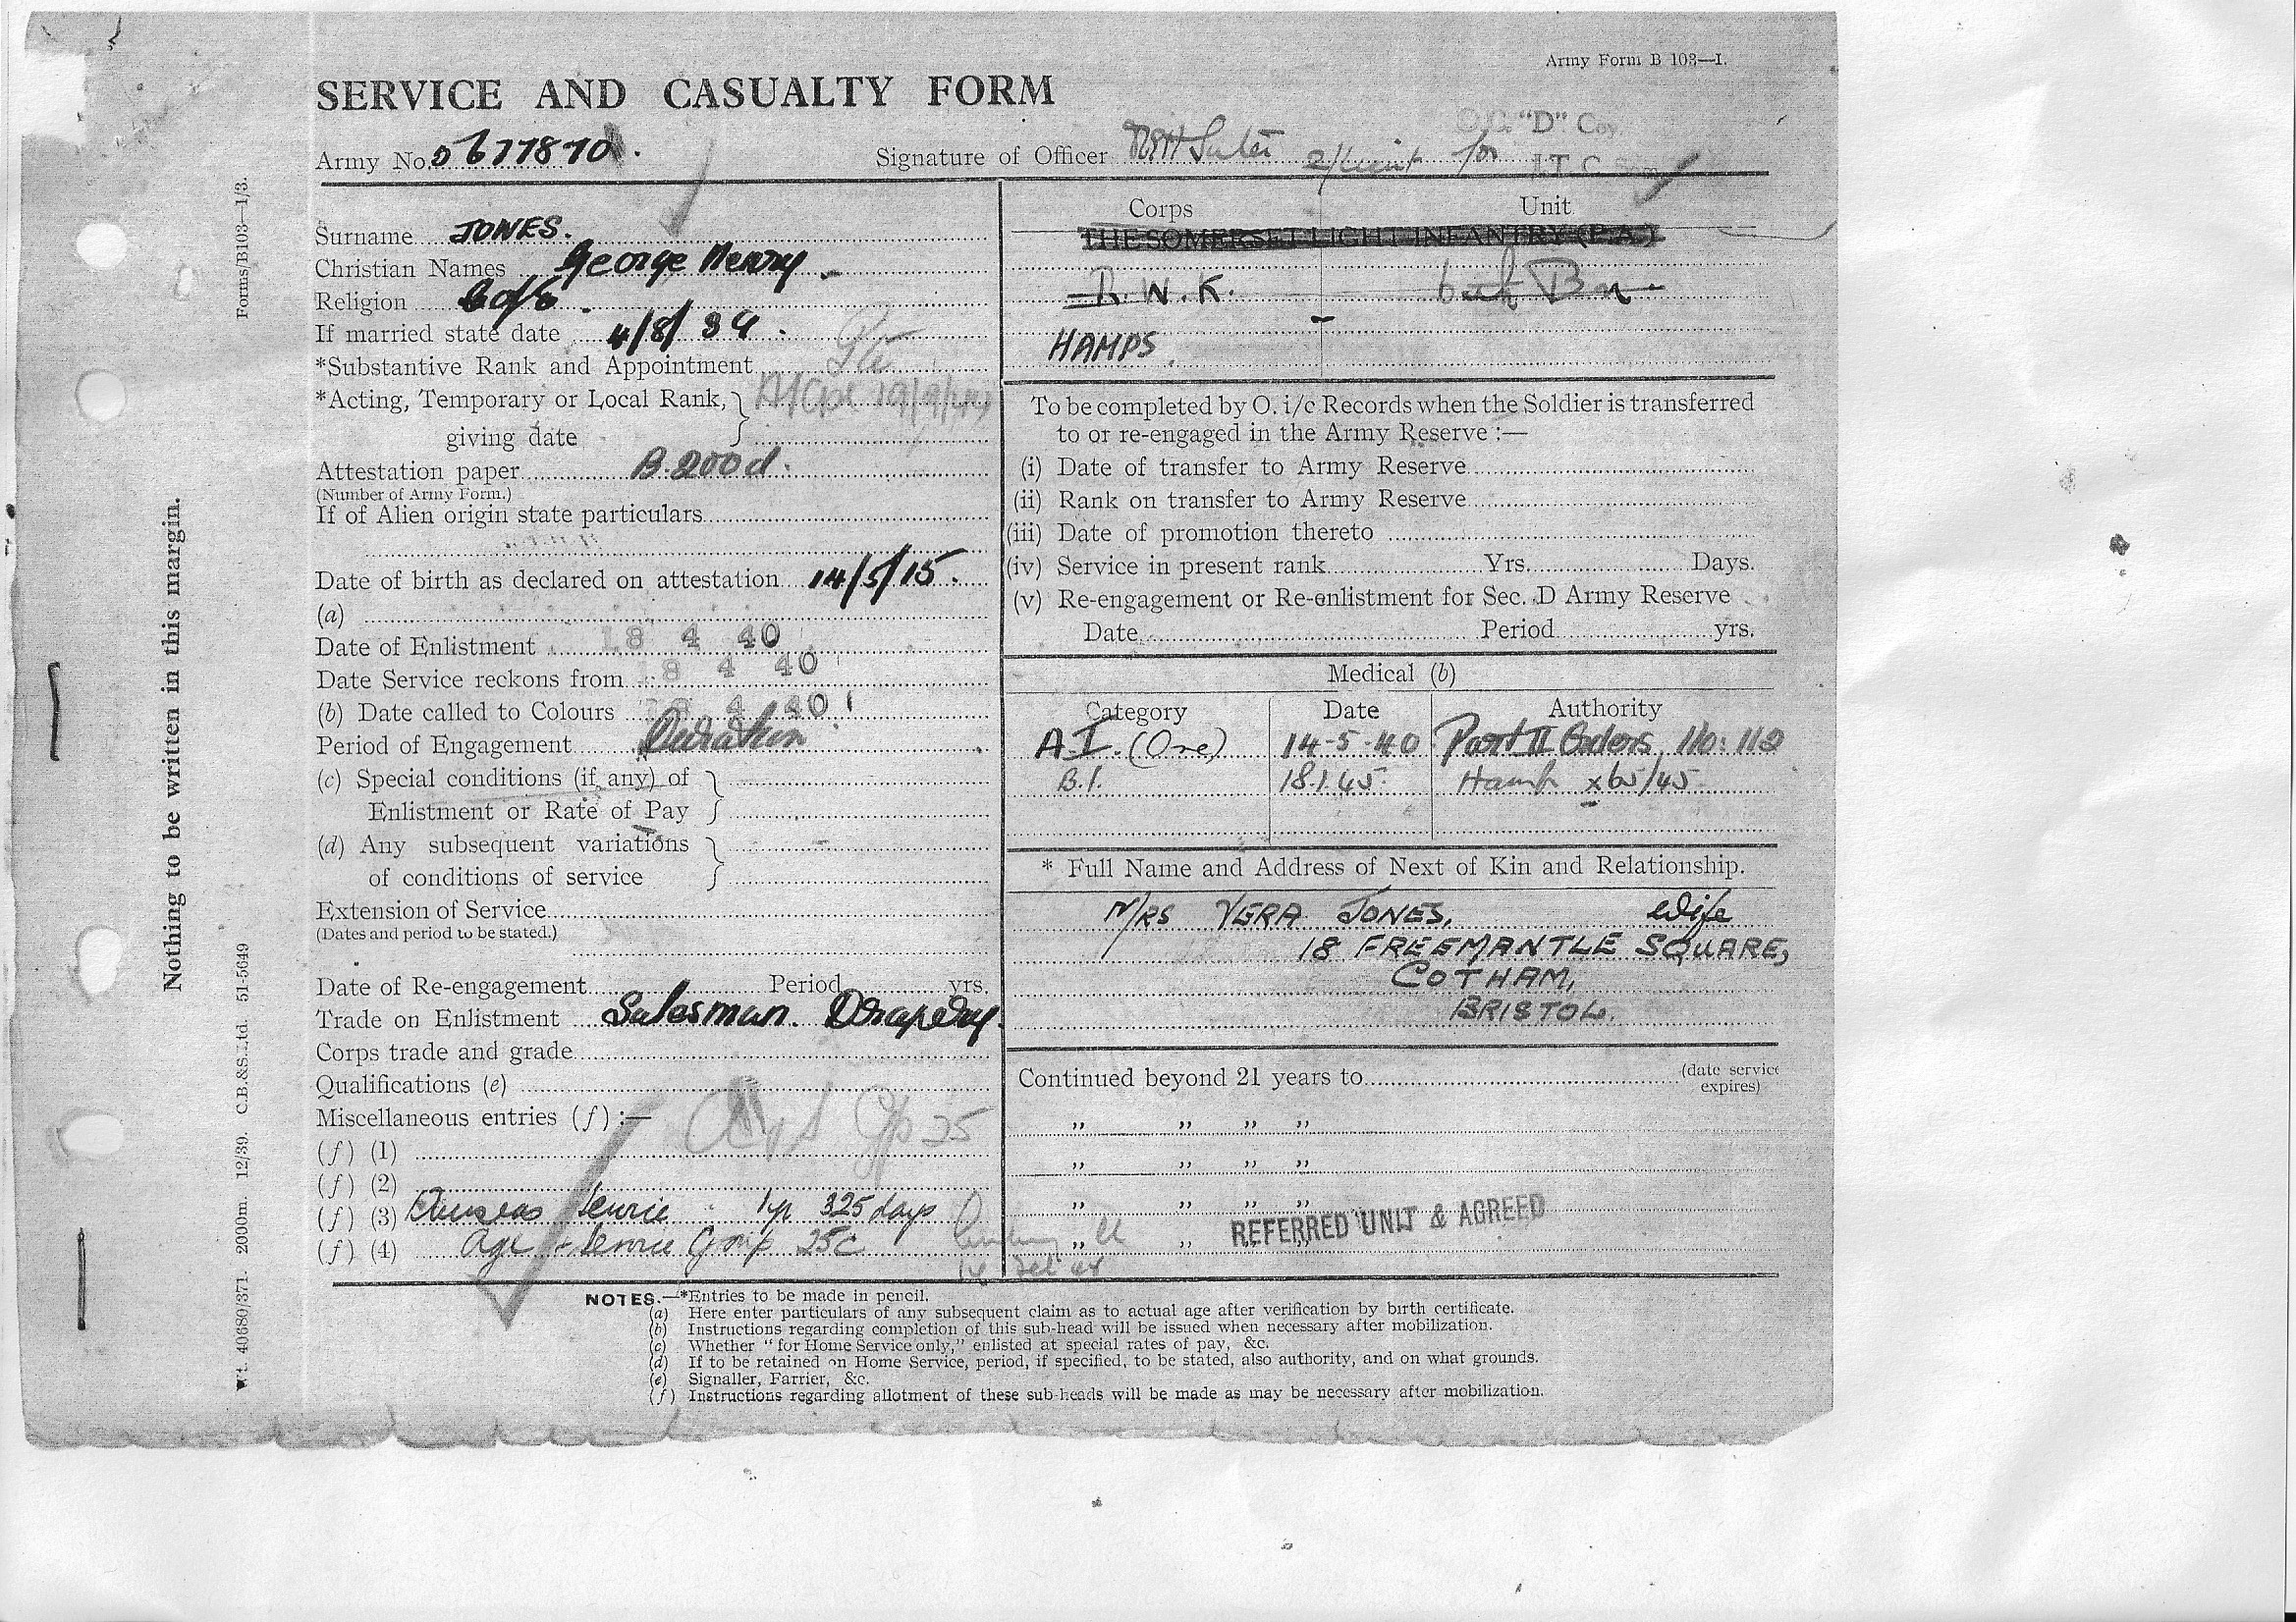 Army Form B 103—I.
SERVICE AND CASUALTY FORM
"D" Coy.
Army No. 5677870.
Signature of Officer 2/Lieut for I.T.C.
Surname JONES.
Christian Names George Henry.
Religion C of E.
If married state date 4/8/39.
*Substantive Rank and Appointment Pte
*Acting, Temporary or Local Rank,
giving date
Attestation paper B.200d.
(Number of Army Form.)
If of Alien origin state particulars
Date of birth as declared on attestation 14/5/15.
(a)
Date of Enlistment 18 4 40
Date Service reckons from 18 4 40
(b) Date called to Colours 18 4 40
Period of Engagement Duration
(c) Special conditions (if any) of
Enlistment or Rate of Pay
(d) Any subsequent variations
of conditions of service
Extension of Service
(Dates and period to be stated.)
Date of Re-engagement Period yrs.
Trade on Enlistment Salesman. Drapery.
Corps trade and grade
Qualifications (e)
Miscellaneous entries (f) :—
A & S Gp 25
(f) (1)
(f) (2)
(f) (3) Overseas Service 1 yr 325 days
(f) (4) Age & Service Group 25C
Corps Unit
THE SOMERSET LIGHT INFANTRY (P.A.)
R.W.K. 6th Bn
HAMPS.
To be completed by O. i/c Records when the Soldier is transferred
to or re-engaged in the Army Reserve :—
(i) Date of transfer to Army Reserve
(ii) Rank on transfer to Army Reserve
(iii) Date of promotion thereto
(iv) Service in present rank Yrs. Days.
(v) Re-engagement or Re-enlistment for Sec. D Army Reserve
Date Period yrs.
Medical (b)
Category Date Authority
A.I. (One) 14-5-40 Part II Orders No: 112
B.1. 18.1.45. Hamps x65/45.
* Full Name and Address of Next of Kin and Relationship.
MRS VERA JONES, Wife
18 FREEMANTLE SQUARE,
COTHAM,
BRISTOL.
Continued beyond 21 years to (date service
expires)
,, ,, ,, ,,
,, ,, ,, ,,
,, ,, ,, ,,
,, ,, ,, ,,
REFERRED UNIT & AGREED
NOTES.—*Entries to be made in pencil.
(a) Here enter particulars of any subsequent claim as to actual age after verification by birth certificate.
(b) Instructions regarding completion of this sub-head will be issued when necessary after mobilization.
(c) Whether "for Home Service only," enlisted at special rates of pay, &c.
(d) If to be retained on Home Service, period, if specified, to be stated, also authority, and on what grounds.
(e) Signaller, Farrier, &c.
(f) Instructions regarding allotment of these sub-heads will be made as may be necessary after mobilization.
Nothing to be written in this margin.
Wt. 40680/371. 2000m. 12/39. C.B.&S.Ltd. 51-5649
Forms/B103—1/3.